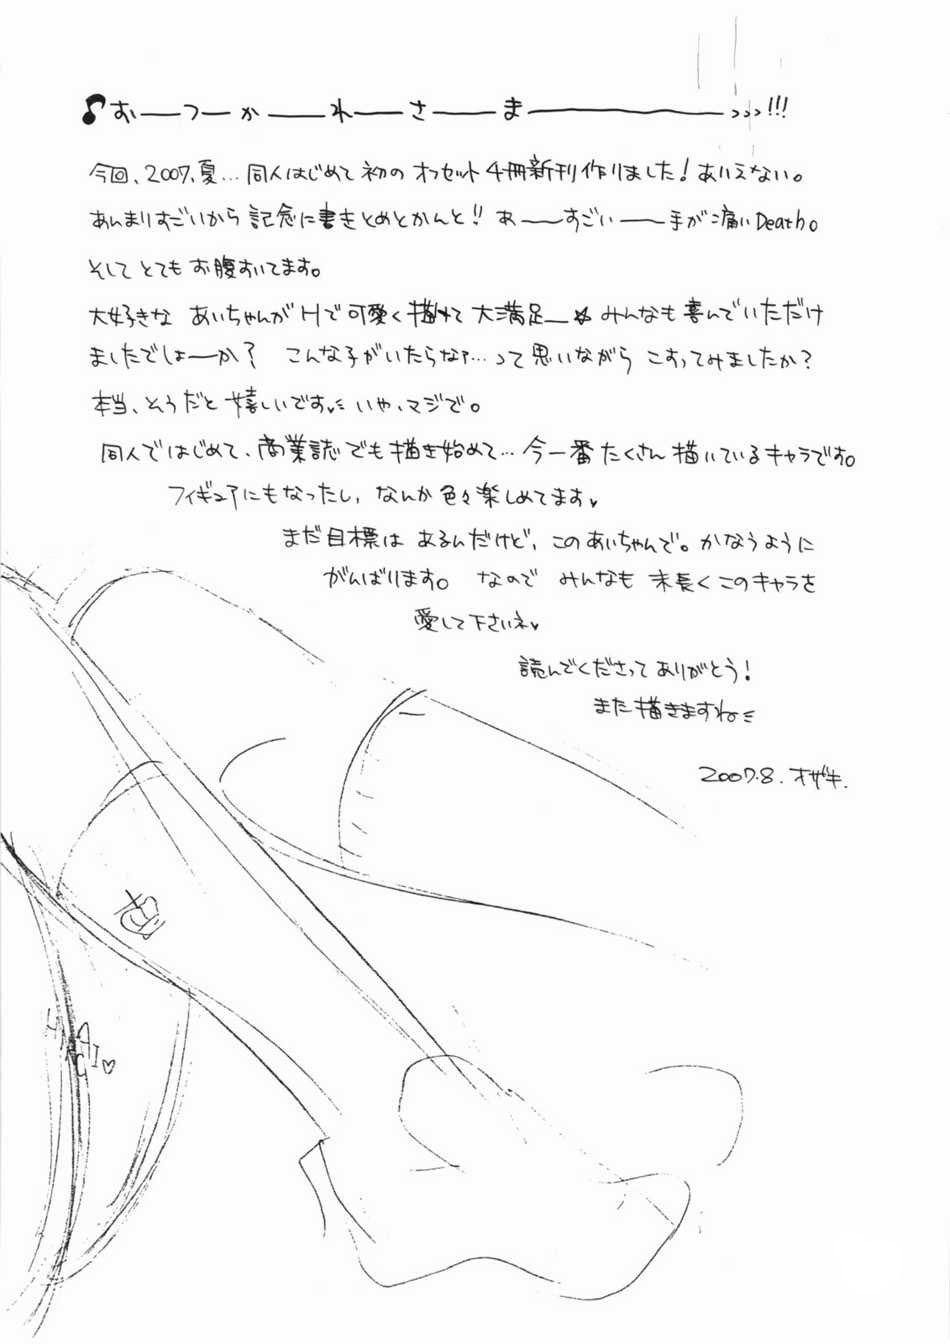 ♪おーつーかーれーさーまー>>>!!!
今回、2007、夏…同人はじめて初のオフセット4冊新刊作りました!ありえない。
あんまりすごいから記念に書きとめとかんと!!あーーすごいーー手が痛いDeath。
そしてとてもお腹すいてます。
大好きなあいちゃんがHで可愛く描けて大満足ー☆みんなも喜んでいただけ
ましたでしょーか?こんな子がいたらなァ…って思いながらこすってみましたか?
本当、そうだと嬉しいです いや、マジで。
同人ではじめて、商業誌でも描き始めて…今一番たくさん描いているキャラです。
フィギュアにもなったし、なんか色々楽しめてます♥
まだ目標はあるんだけど、このあいちゃんで。かなうように
がんばります。なのでみんなも末長くこのキャラを
愛して下さいネ♥
読んでくださってありがとう!
また描きますね
2007.8.オザキ.